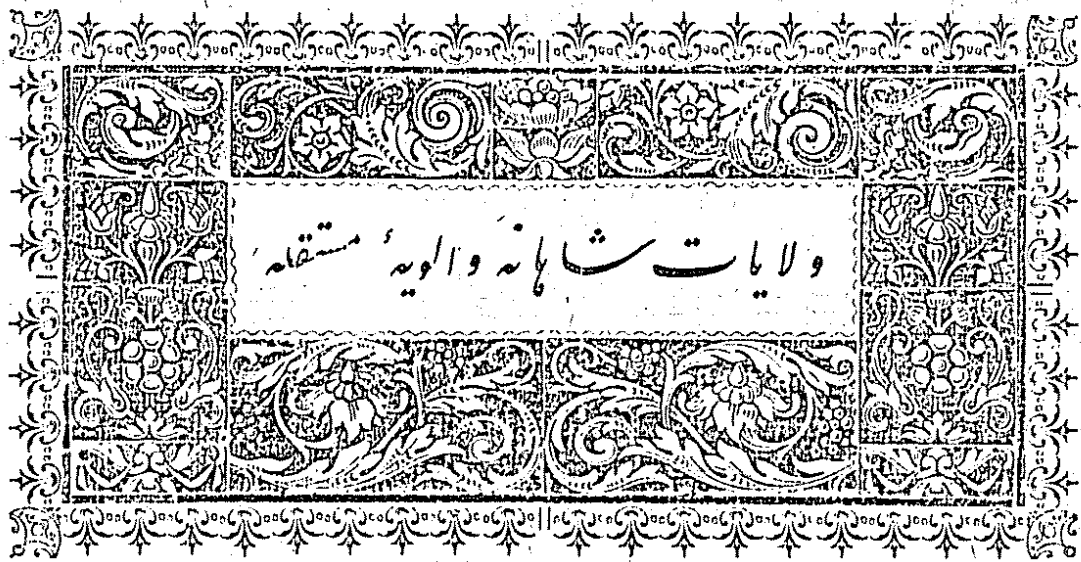 ولايات شاهانه والويهٔ مستقله